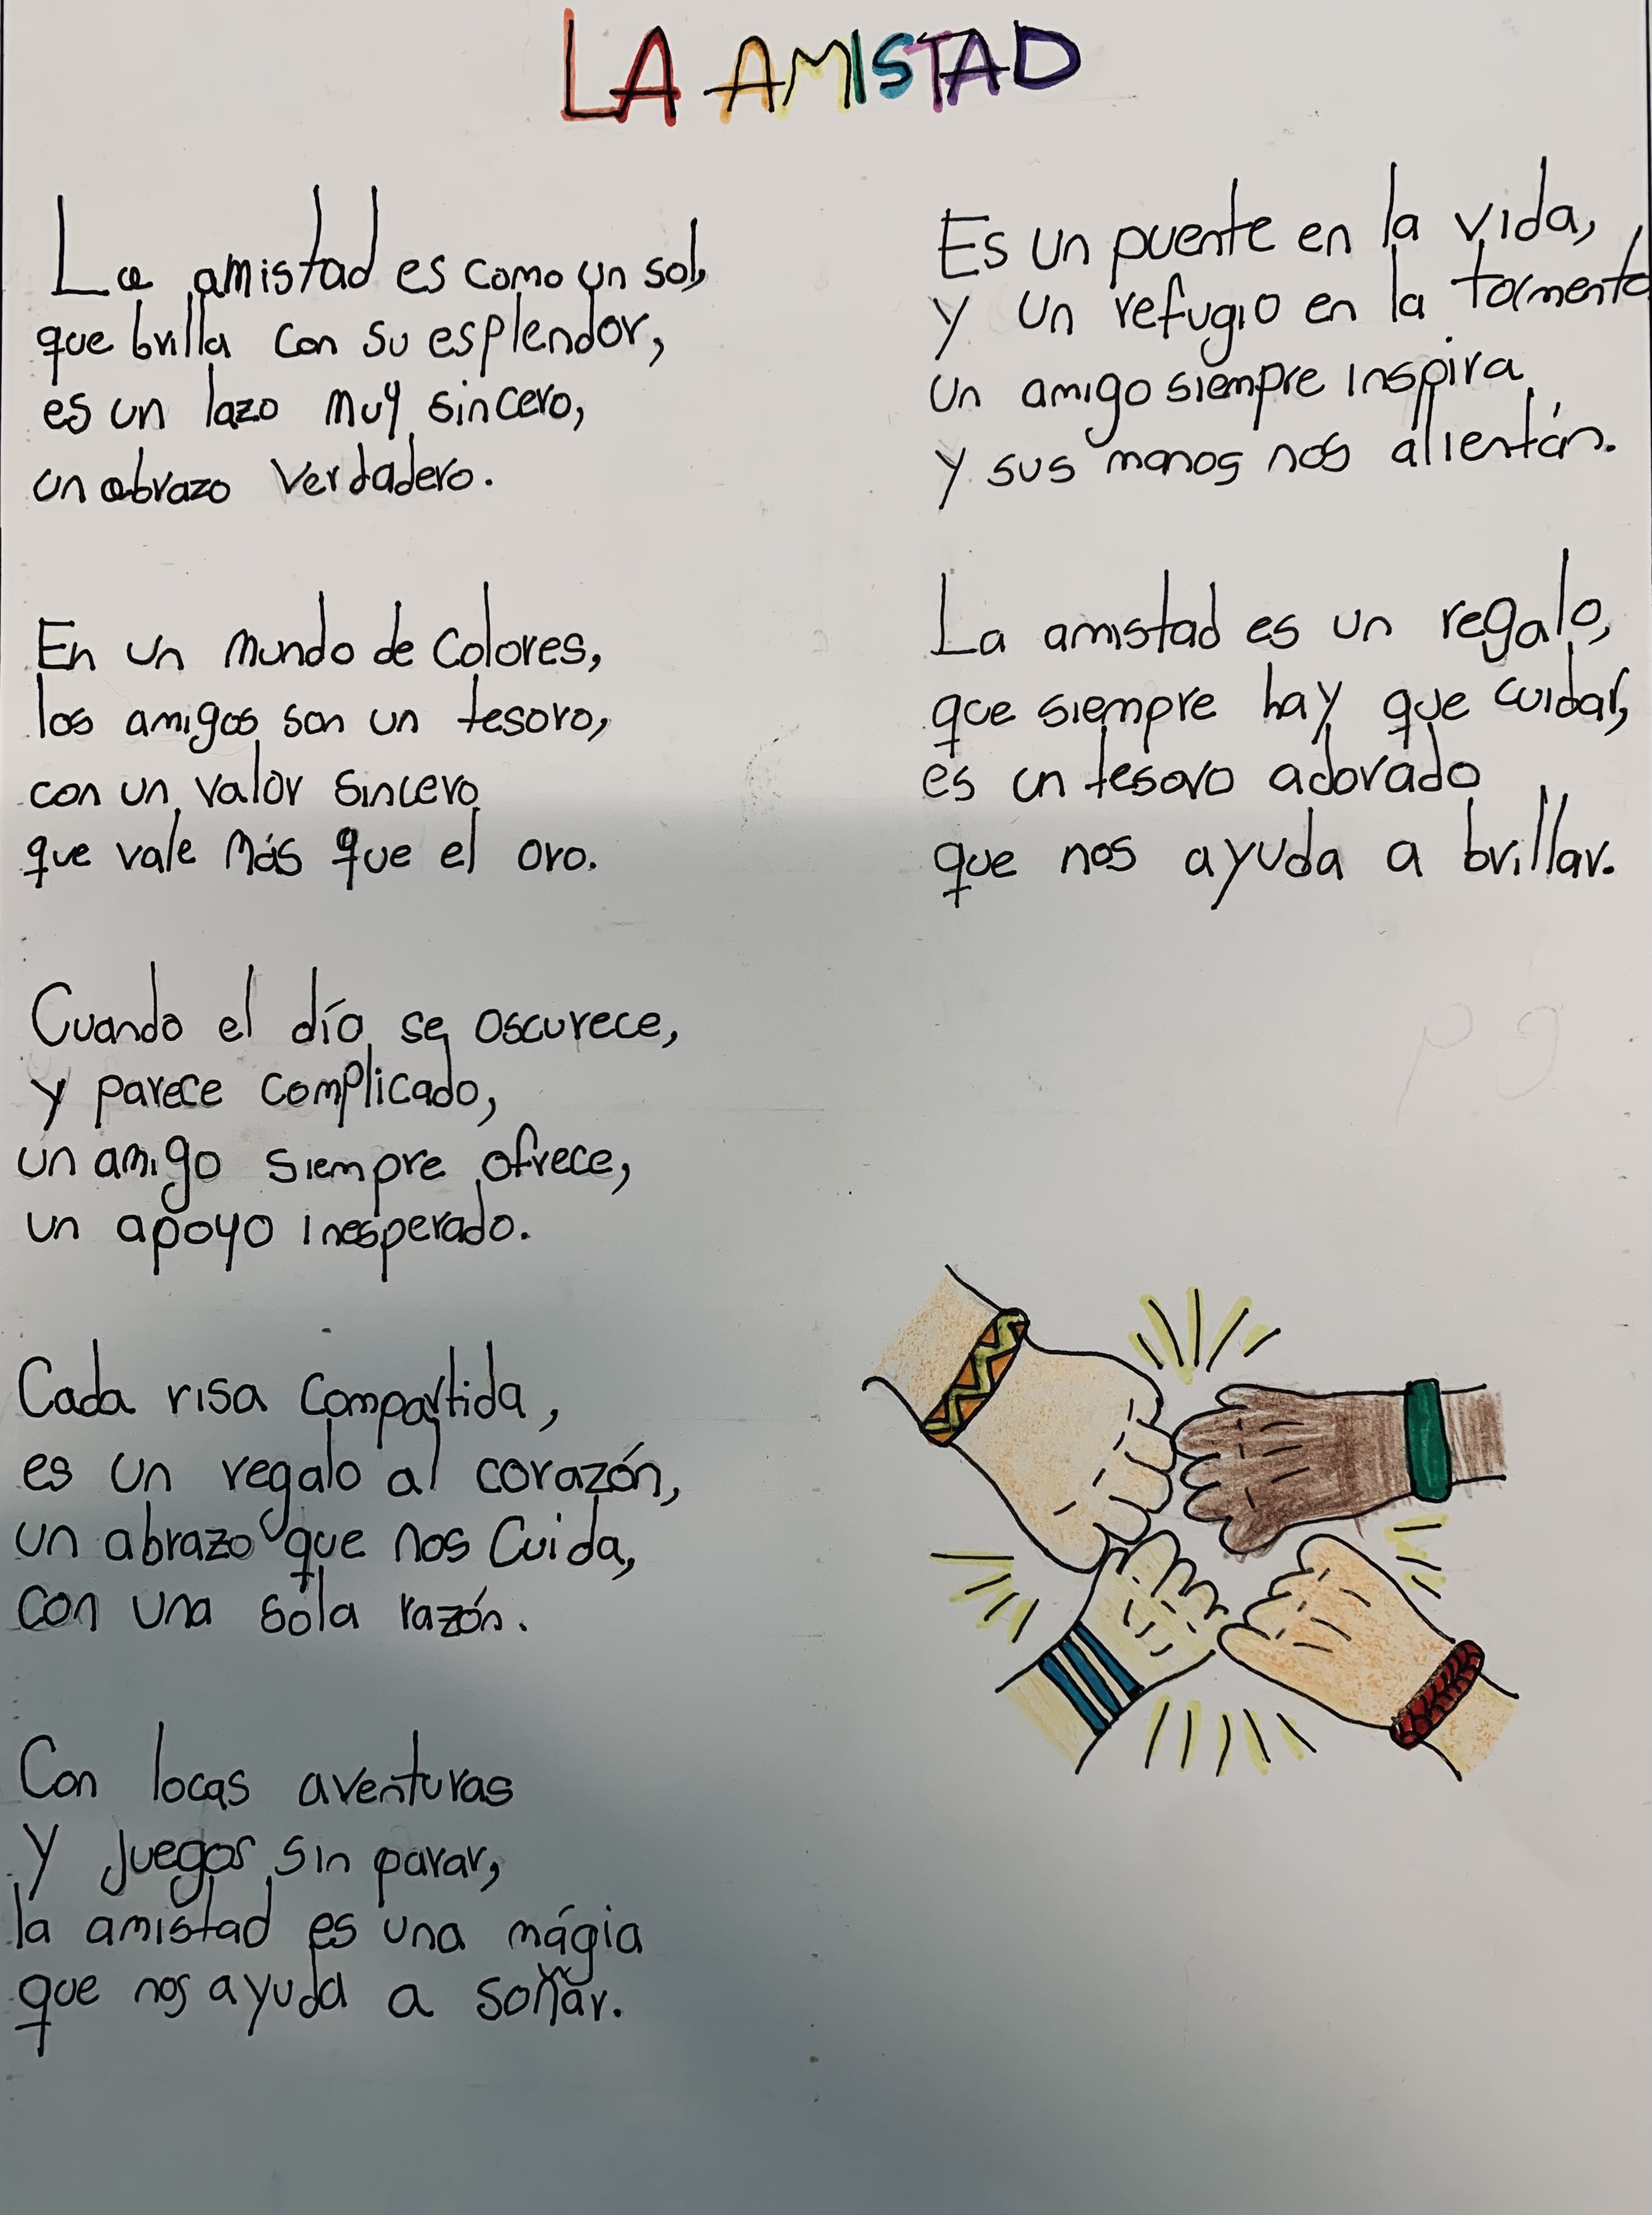 LA AMISTAD
La amistad es como un sol,
que brilla con su esplendor,
es un lazo muy sincero,
un abrazo verdadero.
En un mundo de colores,
los amigos son un tesoro,
con un valor sincero
que vale más que el oro.
Cuando el día se oscurece,
y parece complicado,
un amigo siempre ofrece,
un apoyo inesperado.
Cada risa compartida,
es un regalo al corazón,
un abrazo que nos cuida,
con una sola razón.
Con locas aventuras
y juegos sin parar,
la amistad es una mágia
que nos ayuda a soñar.
Es un puente en la vida,
y un refugio en la tormenta,
un amigo siempre inspira
y sus manos nos alientán.
La amistad es un regalo,
que siempre hay que cuidar,
es un tesoro adorado
que nos ayuda a brillar.